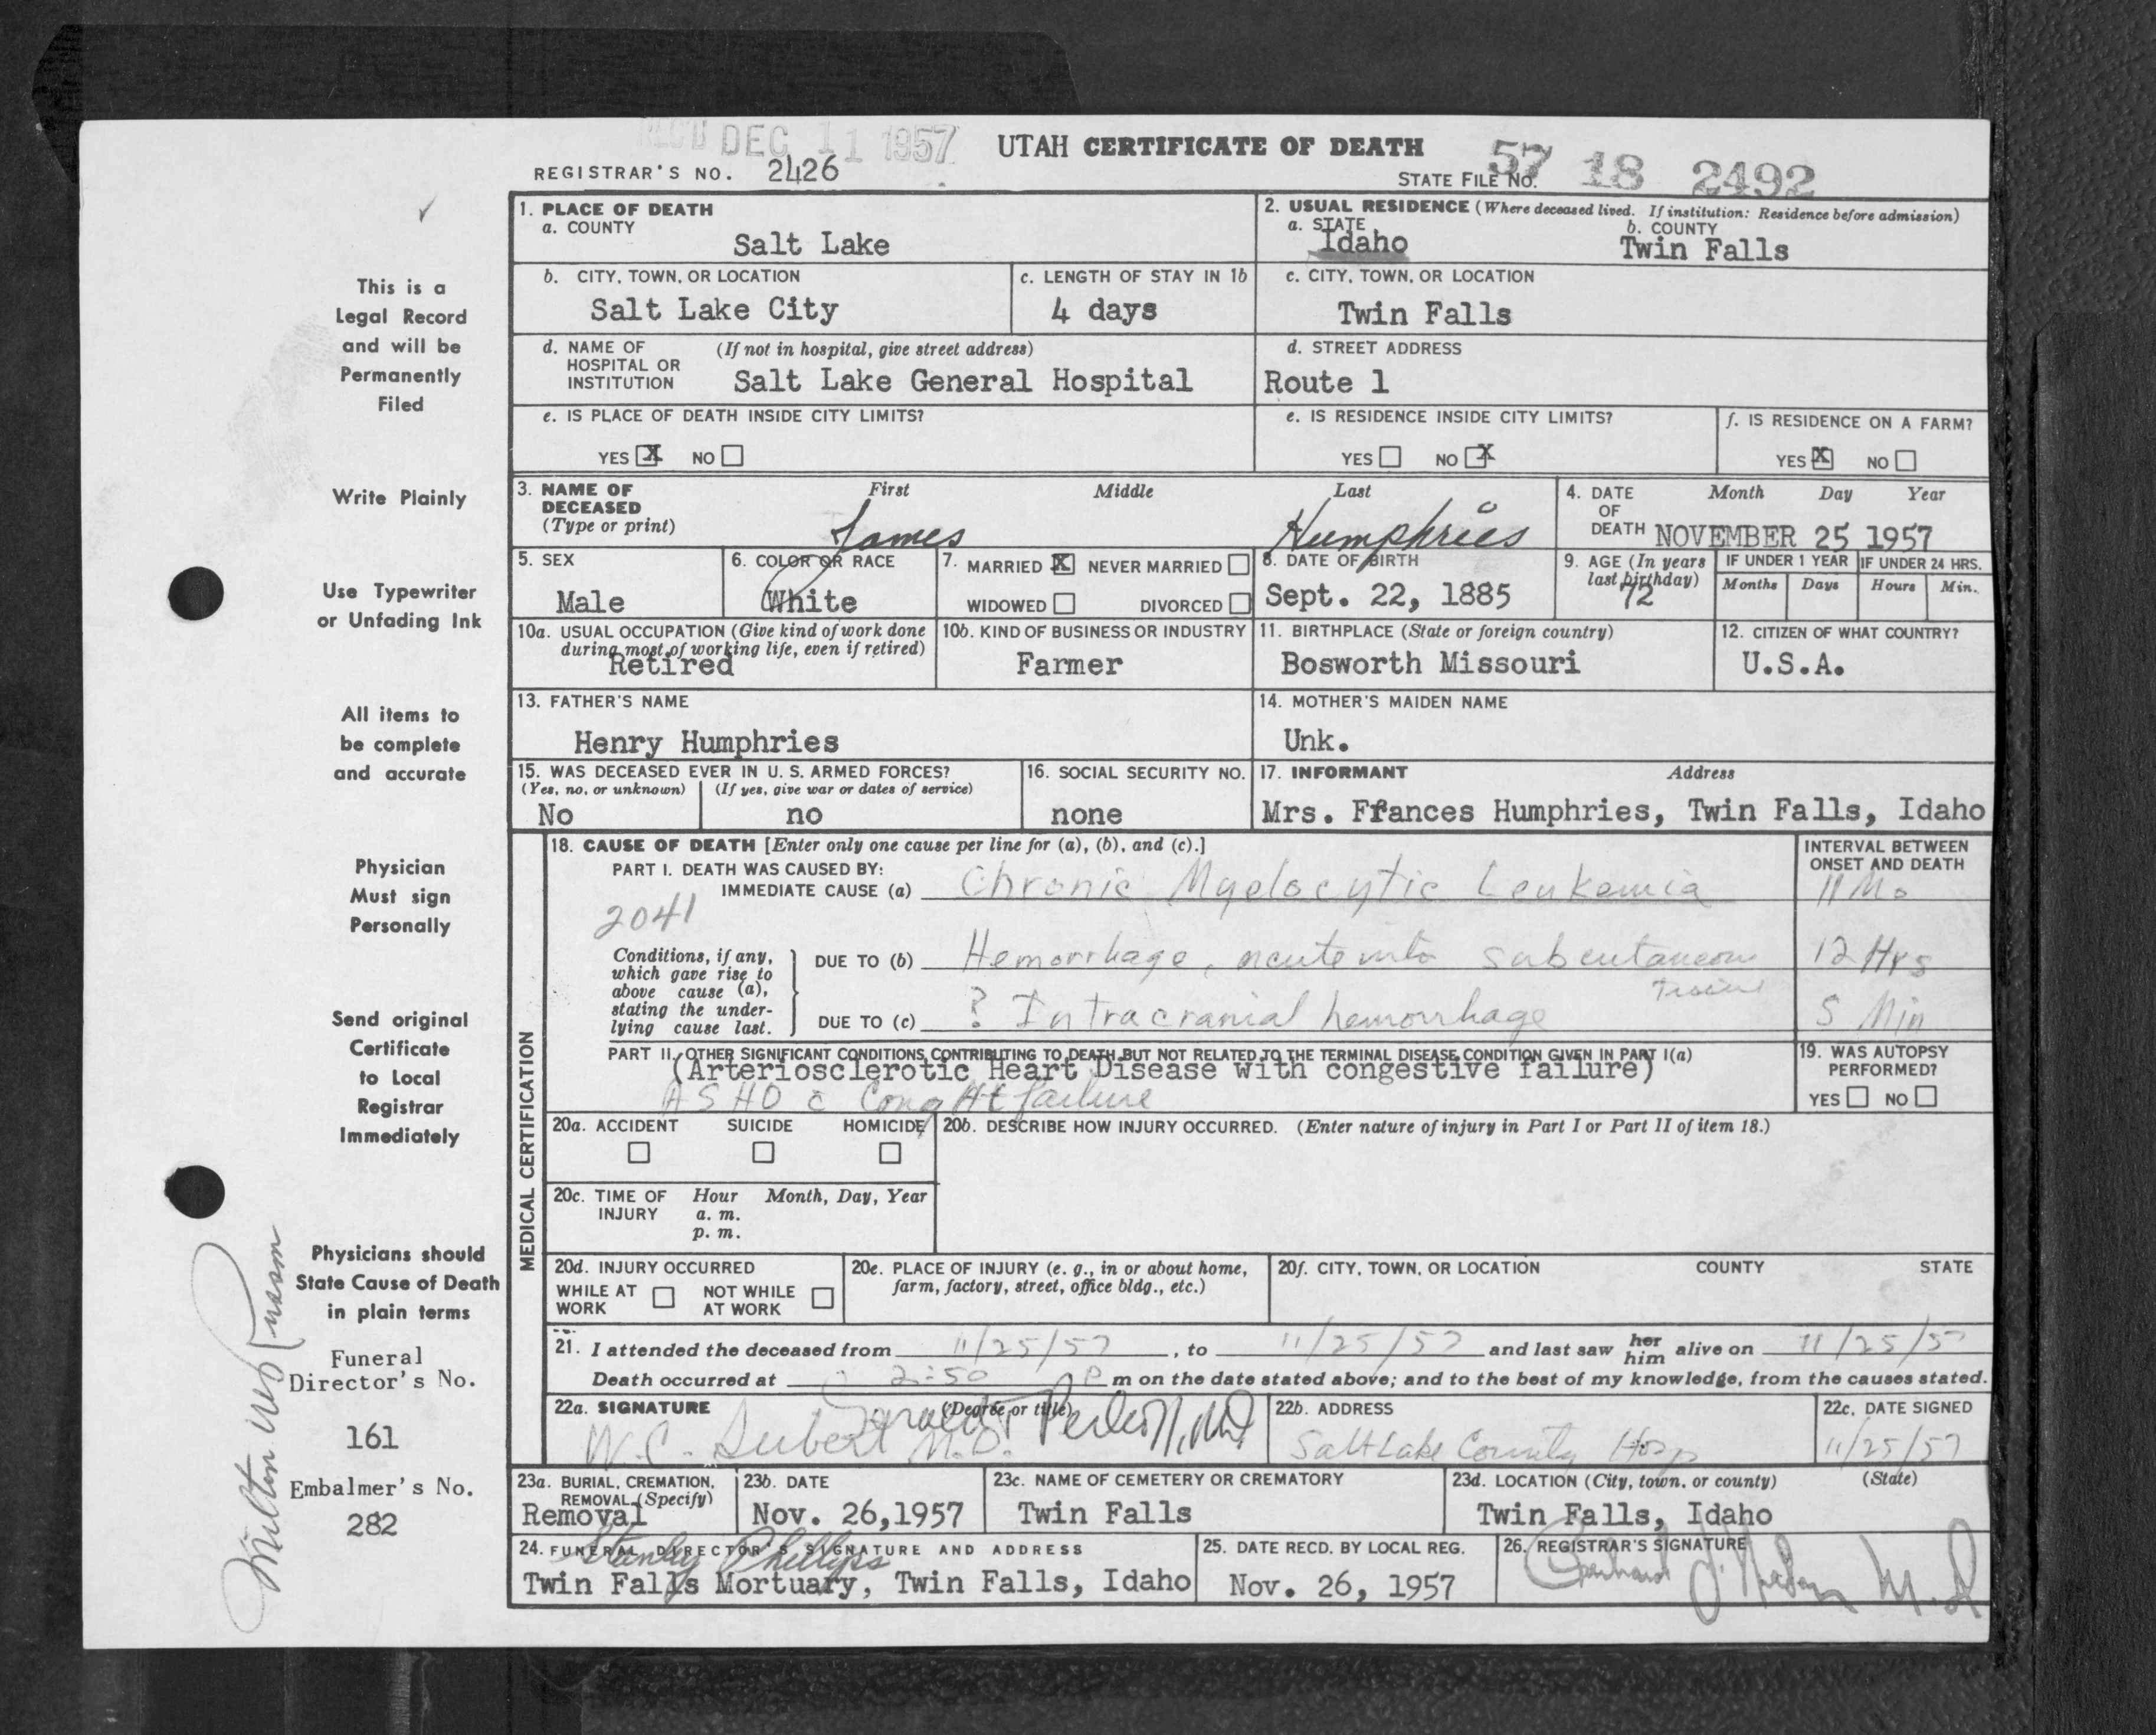 REC'D DEC 11 1957 UTAH CERTIFICATE OF DEATH
REGISTRAR'S NO. 2426
STATE FILE NO. 57 18 2492
1. PLACE OF DEATH
a. COUNTY
Salt Lake
2. USUAL RESIDENCE (Where deceased lived. If institution: Residence before admission)
a. STATE
Idaho
b. COUNTY
Twin Falls
b. CITY, TOWN, OR LOCATION
Salt Lake City
c. LENGTH OF STAY IN 1b
4 days
c. CITY, TOWN, OR LOCATION
Twin Falls
d. NAME OF HOSPITAL OR INSTITUTION (If not in hospital, give street address)
Salt Lake General Hospital
d. STREET ADDRESS
Route 1
e. IS PLACE OF DEATH INSIDE CITY LIMITS?
YES X NO
e. IS RESIDENCE INSIDE CITY LIMITS?
YES NO X
f. IS RESIDENCE ON A FARM?
YES X NO
3. NAME OF DECEASED (Type or print)
First Middle Last
James Humphries
4. DATE OF DEATH Month Day Year
NOVEMBER 25 1957
5. SEX
Male
6. COLOR OR RACE
White
7. MARRIED X NEVER MARRIED
WIDOWED DIVORCED
8. DATE OF BIRTH
Sept. 22, 1885
9. AGE (In years last birthday)
72
IF UNDER 1 YEAR
Months Days
IF UNDER 24 HRS.
Hours Min.
10a. USUAL OCCUPATION (Give kind of work done during most of working life, even if retired)
Retired
10b. KIND OF BUSINESS OR INDUSTRY
Farmer
11. BIRTHPLACE (State or foreign country)
Bosworth Missouri
12. CITIZEN OF WHAT COUNTRY?
U.S.A.
13. FATHER'S NAME
Henry Humphries
14. MOTHER'S MAIDEN NAME
Unk.
15. WAS DECEASED EVER IN U. S. ARMED FORCES?
(Yes, no, or unknown) (If yes, give war or dates of service)
No no
16. SOCIAL SECURITY NO.
none
17. INFORMANT Address
Mrs. Frances Humphries, Twin Falls, Idaho
MEDICAL CERTIFICATION
18. CAUSE OF DEATH [Enter only one cause per line for (a), (b), and (c).]
INTERVAL BETWEEN ONSET AND DEATH
PART I. DEATH WAS CAUSED BY:
IMMEDIATE CAUSE (a) Chronic Myelocytic Leukemia 11 Mo
2041
Conditions, if any, which gave rise to above cause (a), stating the underlying cause last.
DUE TO (b) Hemorrhage, acute into subcutaneous tissue 12 Hrs
DUE TO (c) ? Intracranial hemorrhage 5 Min
PART II. OTHER SIGNIFICANT CONDITIONS CONTRIBUTING TO DEATH BUT NOT RELATED TO THE TERMINAL DISEASE CONDITION GIVEN IN PART I(a)
(Arteriosclerotic Heart Disease with congestive failure)
ASHD c Cong Ht failure
19. WAS AUTOPSY PERFORMED?
YES NO
20a. ACCIDENT SUICIDE HOMICIDE
20b. DESCRIBE HOW INJURY OCCURRED. (Enter nature of injury in Part I or Part II of item 18.)
20c. TIME OF INJURY Hour Month, Day, Year
a. m.
p. m.
20d. INJURY OCCURRED
WHILE AT WORK NOT WHILE AT WORK
20e. PLACE OF INJURY (e. g., in or about home, farm, factory, street, office bldg., etc.)
20f. CITY, TOWN, OR LOCATION COUNTY STATE
21. I attended the deceased from 11/25/57, to 11/25/57 and last saw her him alive on 11/25/57
Death occurred at 2:50 P m on the date stated above; and to the best of my knowledge, from the causes stated.
22a. SIGNATURE (Degree or title)
W.C. M.D.
22b. ADDRESS
Salt Lake County Hosp
22c. DATE SIGNED
11/25/57
23a. BURIAL, CREMATION, REMOVAL (Specify)
Removal
23b. DATE
Nov. 26,1957
23c. NAME OF CEMETERY OR CREMATORY
Twin Falls
23d. LOCATION (City, town, or county) (State)
Twin Falls, Idaho
24. FUNERAL DIRECTOR'S SIGNATURE AND ADDRESS
Stanley Phillips
Twin Falls Mortuary, Twin Falls, Idaho
25. DATE RECD. BY LOCAL REG.
Nov. 26, 1957
26. REGISTRAR'S SIGNATURE
M.D.
This is a
Legal Record
and will be
Permanently
Filed
Write Plainly
Use Typewriter
or Unfading Ink
All items to
be complete
and accurate
Physician
Must sign
Personally
Send original
Certificate
to Local
Registrar
Immediately
Physicians should
State Cause of Death
in plain terms
Funeral
Director's No.
161
Embalmer's No.
282
Milton